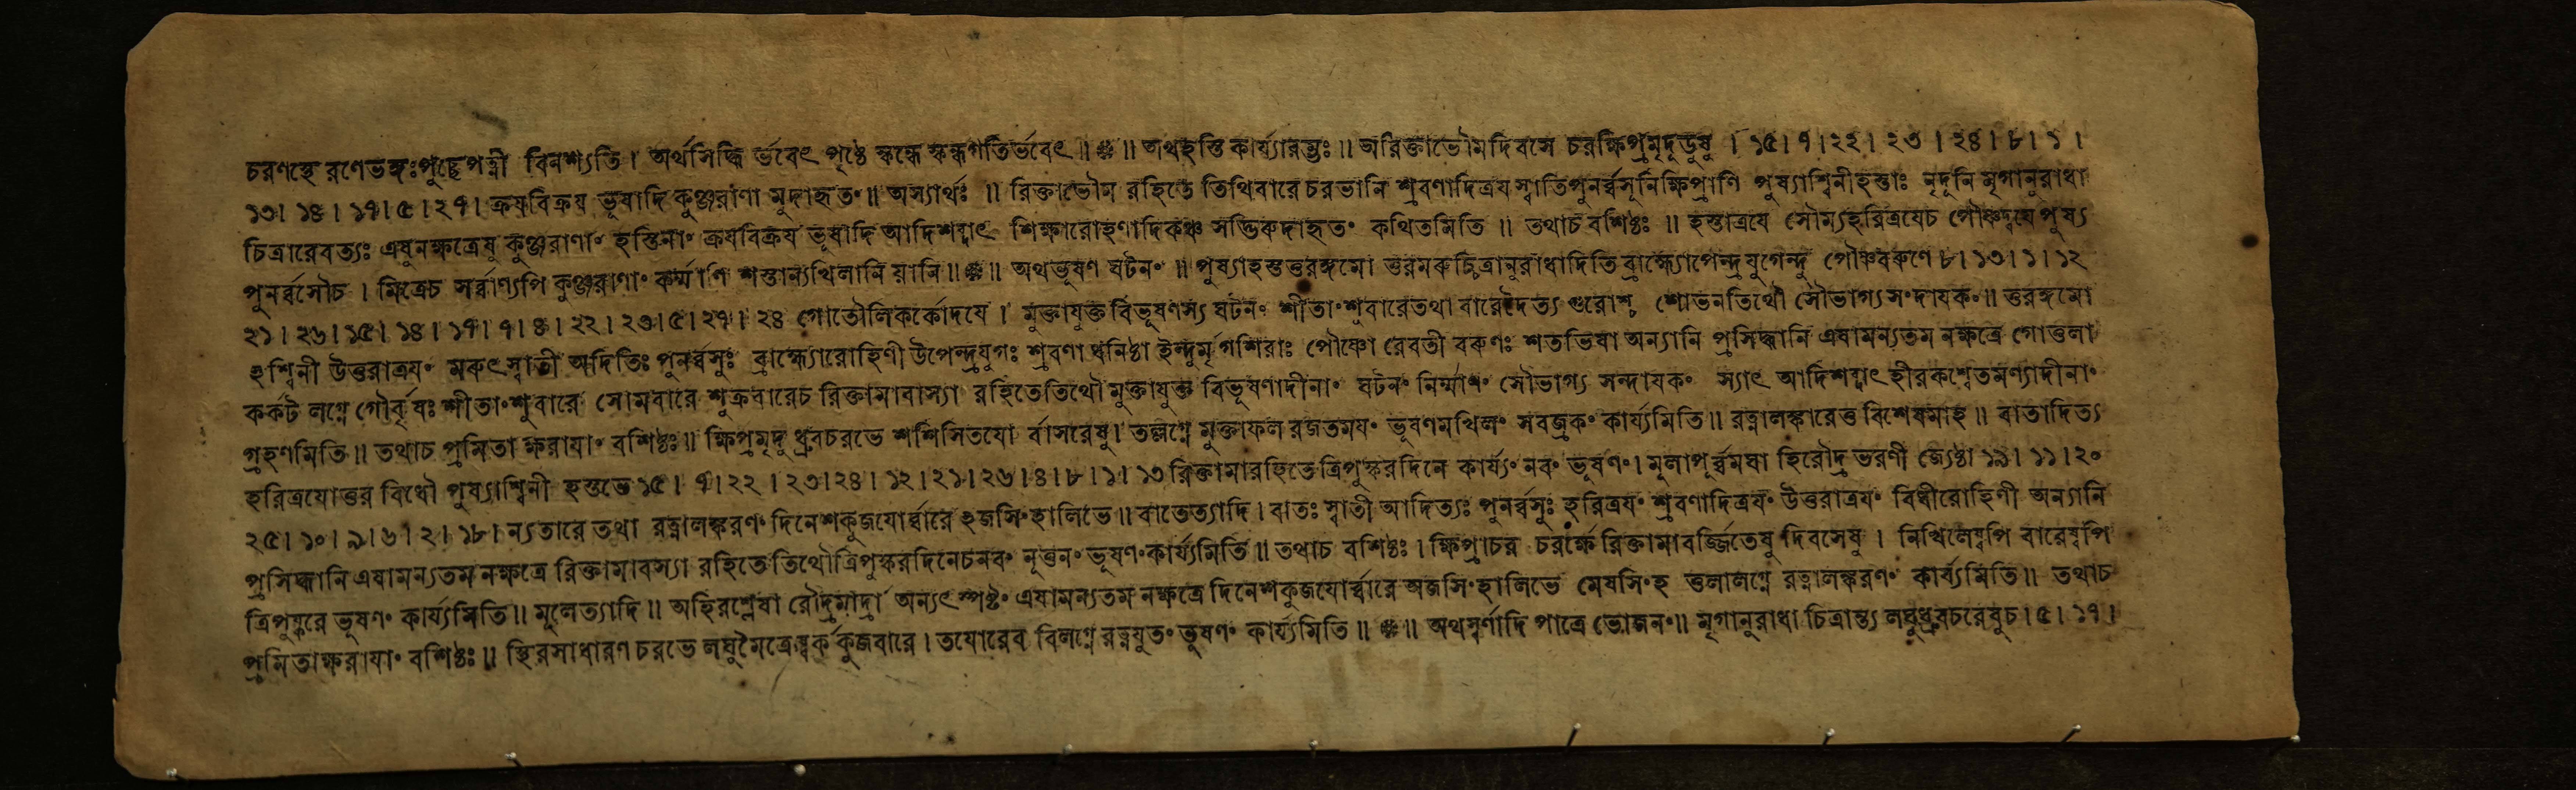 চরণস্থে রণেভঙ্গঃপুচ্ছেপত্নী বিনশ্যতি। অর্থসিদ্ধি র্ভবেৎ পৃষ্ঠে স্কন্ধে স্কন্ধগতির্ভবেৎ॥ ❈ ॥ অথহস্তি কার্য্যারম্ভঃ॥ অরিক্তাভৌমদিবসে চরক্ষিপ্রমৃদূডুষু । ১৫। ৭। ২২। ২৩ । ২৪। ৮। ১ ।
১৩। ১৪। ১৭। ৫। ২৭। ক্রয়বিক্রয় ভূষাদি কুঞ্জরাণা মুদাহৃত॰॥ অস্যার্থঃ ॥ রিক্তাভৌম রহিতে তিথিবারে চরভানি শ্রবণাদিত্রয় স্বাতিপুনর্ব্বসুনিক্ষিপ্রাণি পুষ্যাশ্বিনীহস্তাঃ মৃদূনি মৃগানুরাধা
চিত্রারেবত্যঃ এষুনক্ষত্রেষু কুঞ্জরাণা॰ হস্তিনা॰ ক্রয়বিক্রয় ভূষাদি আদিশব্দাৎ শিক্ষারোহণাদিকঞ্চ সদ্ভিরুদাহৃত॰ কথিতমিতি ॥ তথাচ বশিষ্ঠঃ ॥ হস্তাত্রয়ে সৌম্যহরিত্রয়েচ পৌষ্ণদ্বয়ে পুষ্য
পুনর্ব্বসৌচ । মিত্রেচ সর্ব্বাণ্যপি কুঞ্জরাণা॰ কর্ম্মাণি শস্তান্যখিলানি যানি॥ ❈ ॥ অথভূষণ ঘটন॰ ॥ পুষ্যাহস্ততুরঙ্গমো ত্তরমরুচ্চিত্রানুরাধাদিতি ব্রাহ্ম্যোপেন্দ্রযুগেন্দু পৌষ্ণবরুণে ৮। ১৩। ১। ১২
২১। ২৬। ১৫। ১৪। ১৭। ৭। ৪। ২২। ২৩। ৫। ২৭। ২৪ গোতৌলিকর্কোদয়ে । মুক্তাযুক্ত বিভূষণস্য ঘটন॰ শীতা॰শুবারেতথা বারেদৈত্য গুরোশ্চ শোভনতিথৌ সৌভাগ্যস॰দায়ক॰॥ তুরঙ্গমো
হশ্বিনী উত্তরাত্রয়॰ মরুৎস্বাতী অদিতিঃ পুনর্ব্বসুঃ ব্রাহ্ম্যোরোহিণী উপেন্দ্রযুগঃ শ্রবণা ধনিষ্ঠা ইন্দুর্মৃগশিরাঃ পৌষ্ণো রেবতী বরুণঃ শতভিষা অন্যানি প্রসিদ্ধানি এষামন্যতম নক্ষত্রে গোতুলা
কর্কট লগ্নে গৌর্বৃষঃ শীতা॰শুবারে সোমবারে শুক্রবারেচ রিক্তামাবাস্যা রহিতেতিথৌ মুক্তাযুক্ত বিভূষণাদীনা॰ ঘটন॰ নির্ম্মাণ॰ সৌভাগ্য সন্দায়ক॰ স্যাৎ আদিশব্দাৎ হীরকশ্বেতমণ্যাদীনা॰
গ্রহণমিতি॥ তথাচ প্রমিতা ক্ষরায়া॰ বশিষ্ঠঃ॥ ক্ষিপ্রমৃদু ধ্রুবচরভে শশিসিতয়ো র্বাসরেষু। তল্লগ্নে মুক্তাফল রজতময়॰ ভূষণমখিল॰ সবজ্রক॰ কার্য্যমিতি॥ রত্নালঙ্কারেতু বিশেষমাহ ॥ বাতাদিত্য
হরিত্রয়োত্তর বিধৌ পুষ্যাশ্বিনী হস্তভে ১৫। ৭। ২২ । ২৩। ২৪। ১২। ২১। ২৬। ৪। ৮। ১। ১৩ রিক্তামারহিতে ত্রিপুষ্করদিনে কার্য্য॰ নব॰ ভূষণ॰। মূলাপূর্ব্বমঘা হিরৌদ্র ভরণী জ্যেষ্ঠা ১৯। ১১। ২০
২৫। ১০। ৯। ৬। ২। ১৮। ন্যতারে তথা রত্নালঙ্করণ॰ দিনেশকুজয়োর্ব্বারে হজসি॰হালিভে॥ বাতেত্যাদি। বাতঃ স্বাতী আদিত্যঃ পুনর্ব্বসুঃ হরিত্রয়॰ শ্রবণাদিত্রয়॰ উত্তরাত্রয়॰ বিধীরোহিণী অন্যানি
প্রসিদ্ধানি এষামন্যতম নক্ষত্রে রিক্তামাবস্যা রহিতে তিথৌত্রিপুষ্করদিনেচনব॰ নূতন॰ ভূষণ॰কার্য্যমিতি॥ তথাচ বশিষ্ঠঃ। ক্ষিপ্রাচর চরর্ক্ষে রিক্তামাবর্জ্জিতেষু দিবসেষু । নিখিলেষ্বপি বারেষ্বপি
ত্রিপুষ্করে ভূষণ॰ কার্য্যমিতি॥ মূলেত্যাদি॥ অহিরশ্লেষা রৌদ্রমার্দ্রা অন্যৎস্পষ্ট॰ এষামন্যতম নক্ষত্রে দিনেশকুজয়োর্ব্বারে অজসি॰হালিভে মেষসি॰হ তুলালগ্নে রত্নালঙ্করণ॰ কার্য্যমিতি॥ তথাচ
প্রমিতাক্ষরায়া॰ বশিষ্ঠঃ॥ স্থিরসাধারণ চরভে লঘুমৈত্রেষ্বর্ক কুজবারে। তয়োরেব বিলগ্নে রত্নযুত॰ ভূষণ॰ কার্য্যমিতি ॥ ❈ ॥ অথস্বর্ণাদি পাত্রে ভোজন॰॥ মৃগানুরাধা চিত্রান্ত্য লঘুধ্রুবচরেষুচ। ৫। ১৭।